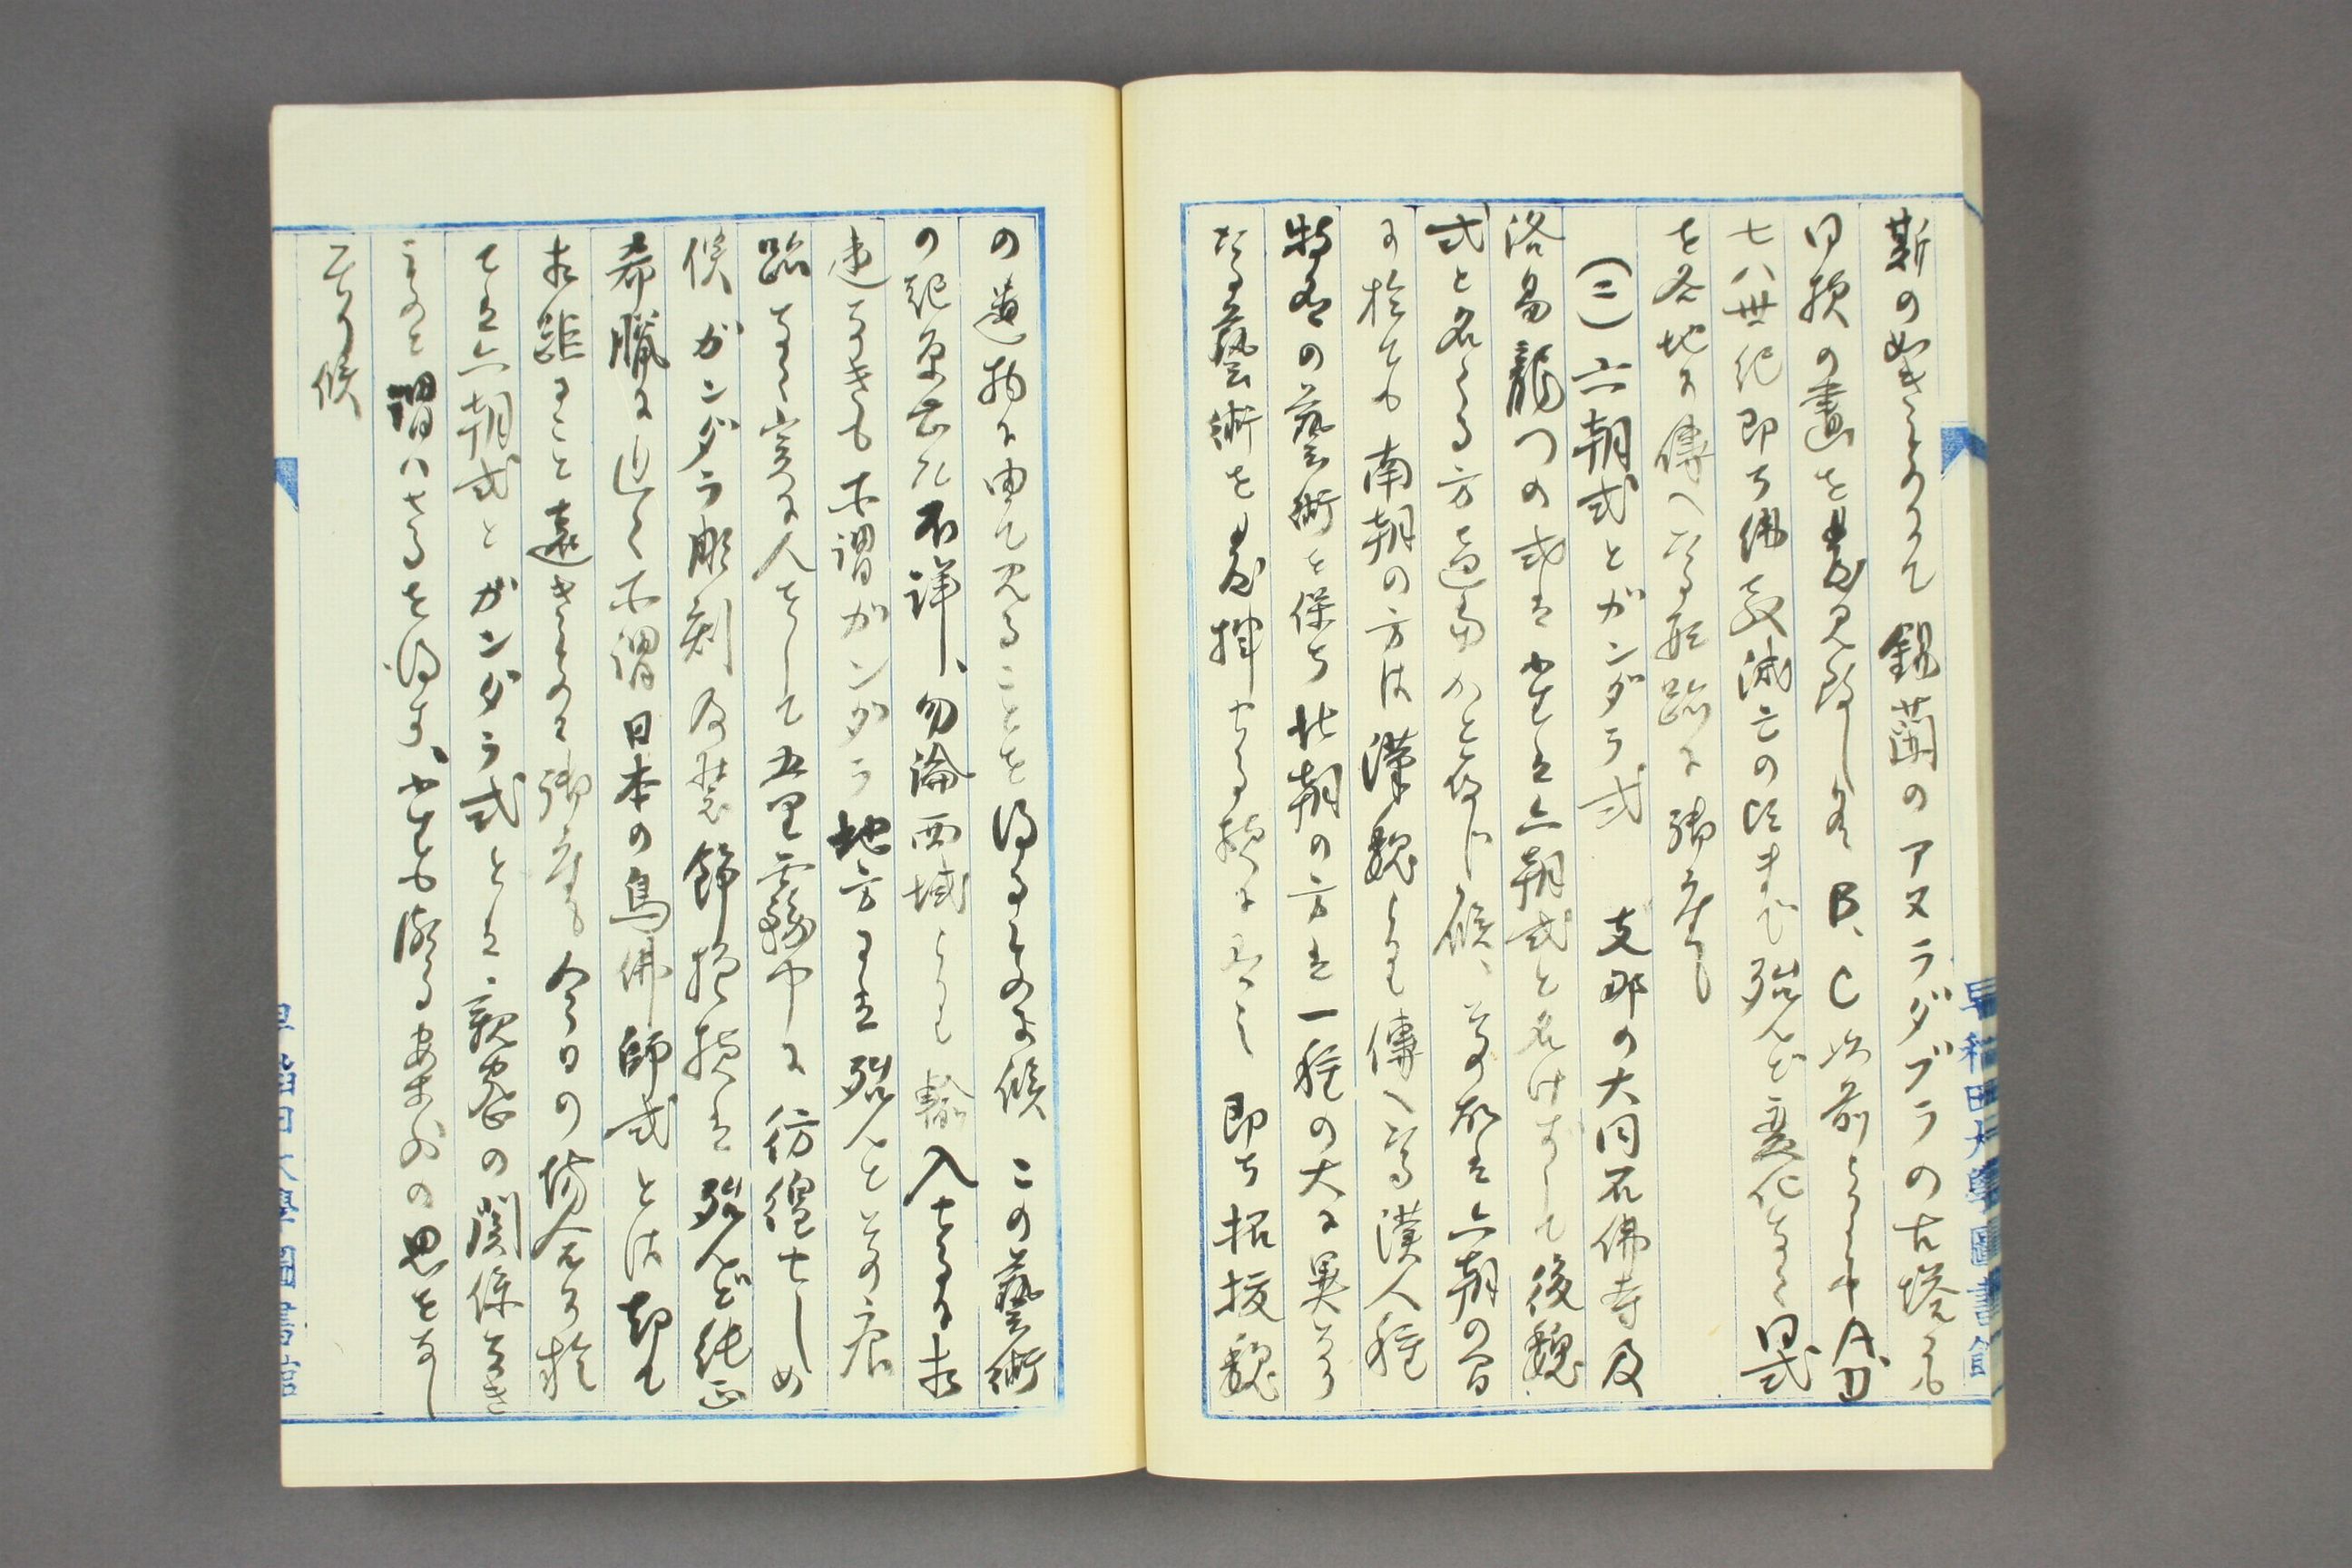 斯の如きものにて錫蘭のアヌラダプラの古塔にも
同様の畫を見 B、C 以前 A、D
七八世紀即ち佛教滅亡の頃まで殆んど変化なく同式
を各地に傳へたる形跡に御座候
(二)六朝式とガンダラ式 支那の大同石佛寺及
洛易龍門の式は 六朝式と名けずして後魏
式と名くる方適当かと存じ候、其故は六朝の間
に於ても南朝の方は漢魏より傳へたる漢人種
特有の藝術を保ち北朝の方は一種の大に異なり
たる藝術を発揮せる様に 即ち拓拔魏
の遺物に由て見ることを得るものに候 この藝術
の起原は 不詳、勿論西域より輸入せるに相
違なきも所謂ガンダラ地方には殆んど其痕
跡なく実に人をして五里霧中に彷徨せしめ
候 ガンダラ彫刻及装飾模様は殆んど純正
希臘に近く所謂日本の鳥佛師式とは却て
相距ること遠きものに御座候 今日の場合に於
ては六朝式とガンダラ式とは、親密の関係なき
ものと謂はざるを得ず、 意外の思をなし
居り候
早稲田大學圖書館
早稲田大學圖書館